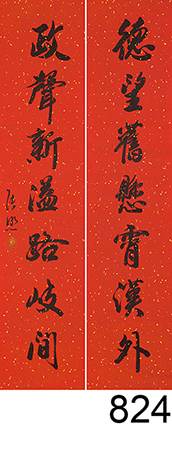 德望舊懸霄漢外
政聲新溢路岐間
824